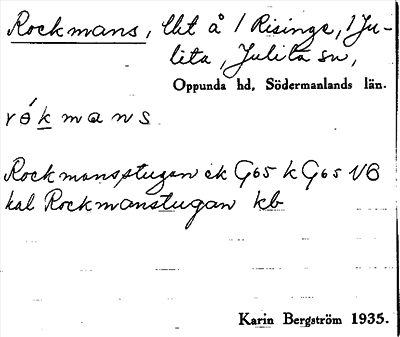 Rockmans, lht å / Risinge, / Ju-
lita, Julita sn,
Oppunda hd, Södermanlands län.
rókmans
Rockmansstugan ek G65 k G65 VB
kal Rockmanstugan kb
Karin Bergström 1935.